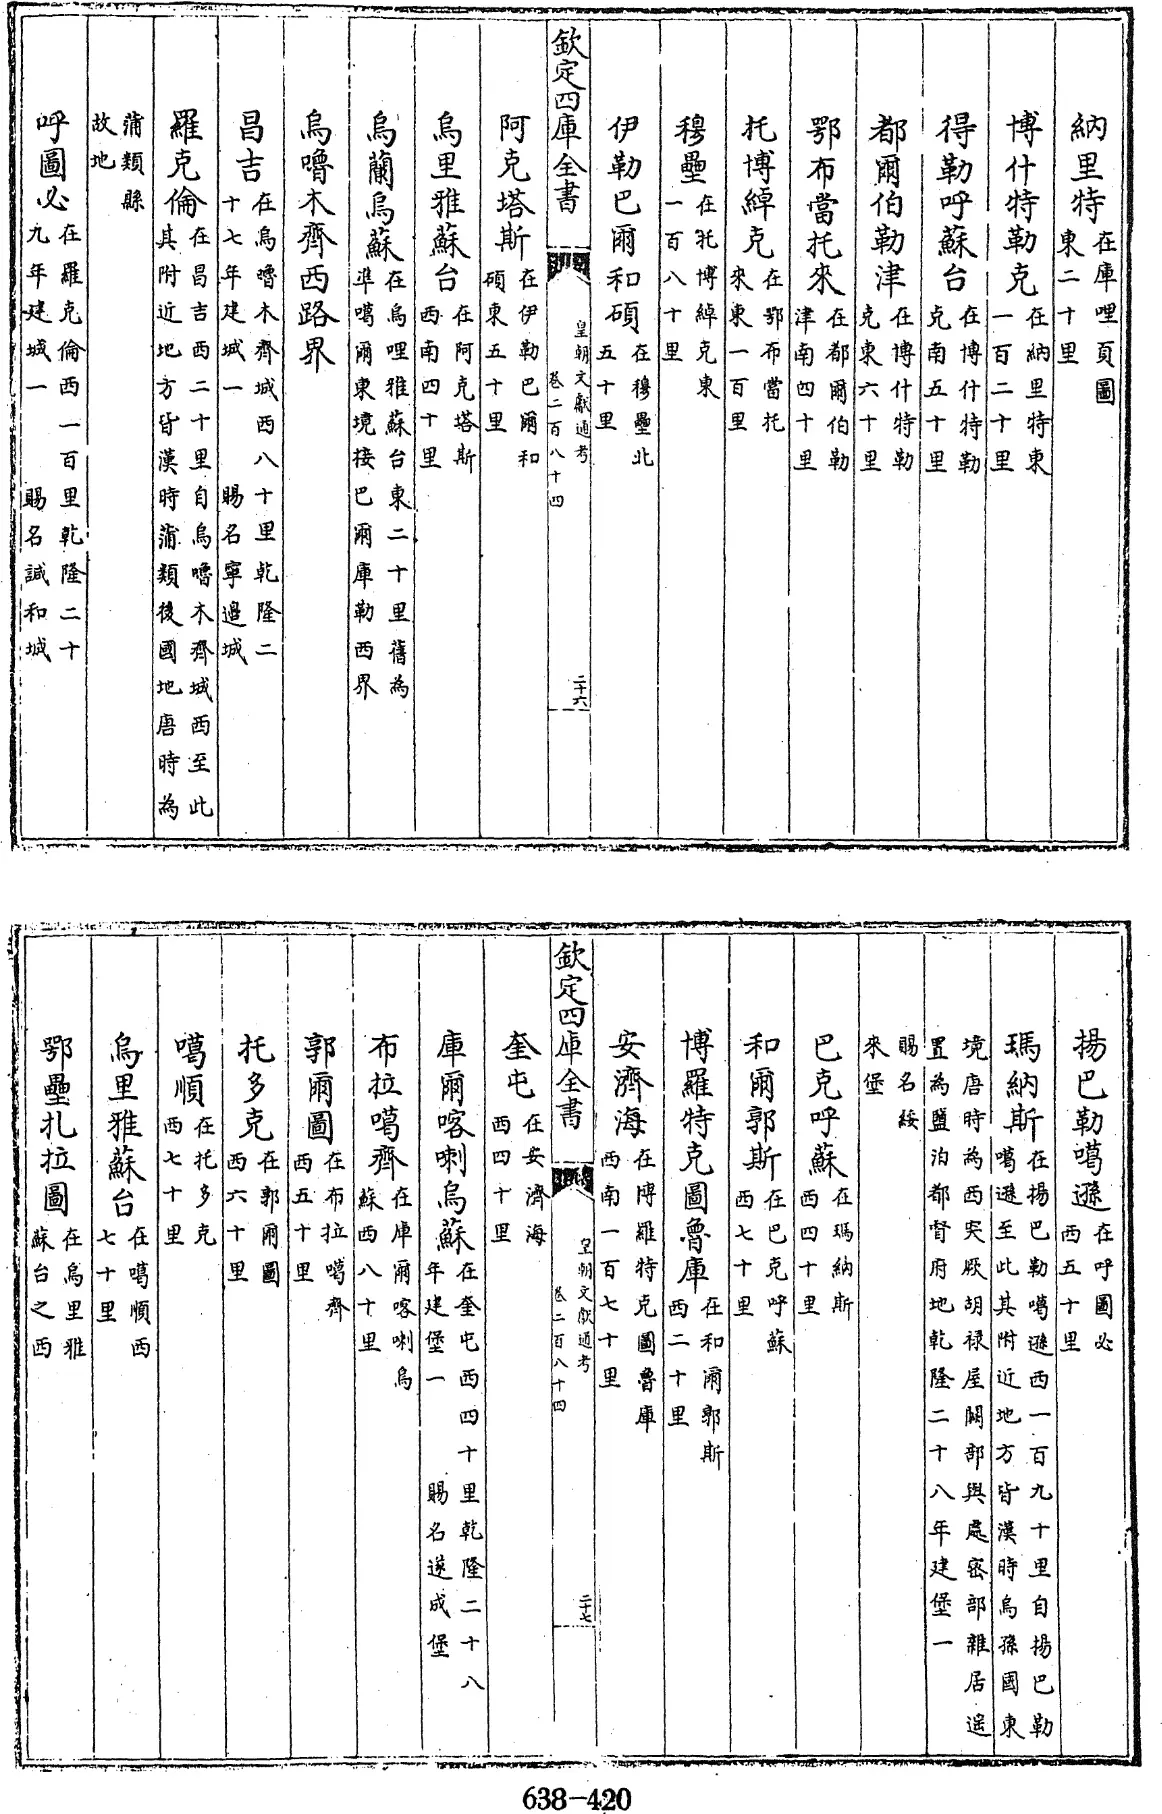 納里特在庫哩頁圖東二十里
博什特勒克在納里特東一百二十里
得勒呼蘇台在博什特勒克南五十里
都爾伯勒津在博什特勒克東六十里
鄂布當托來在都爾伯勒津南四十里
托博綽克在鄂布當托來東一百里
穆壘在托博綽克東一百八十里
伊勒巴爾和碩在穆壘北五十里
欽定四庫全書
皇朝文獻通考
卷二百八十四
二十六
阿克塔斯在伊勒巴爾和碩東五十里
烏里雅蘇台在阿克塔斯西南四十里
烏蘭烏蘇在烏哩雅蘇台東二十里舊為準噶爾東境接巴爾庫勒西界
烏嚕木齊西路界
昌吉在烏嚕木齊城西八十里乾隆二十七年建城一 賜名寧邊城
羅克倫在昌吉西二十里自烏嚕木齊城西至此其附近地方皆漢時蒲類後國地唐時為
蒲類縣故地
呼圖必在羅克倫西一百里乾隆二十九年建城一 賜名諴和城
揚巴勒噶遜在呼圖必西五十里
瑪納斯在揚巴勒噶遜西一百九十里自揚巴勒噶遜至此其附近地方皆漢時烏孫國東
境唐時為西突厥胡祿屋闕部與處密部雜居遥置為鹽泊都督府地乾隆二十八年建堡一
賜名綏來堡
巴克呼蘇在瑪納斯西四十里
和爾郭斯在巴克呼蘇西七十里
博羅特克圖魯庫在和爾郭斯西二十里
安濟海在博羅特克圖魯庫西南一百七十里
欽定四庫全書
皇朝文獻通考
卷二百八十四
二十七
奎屯在安濟海西四十里
庫爾喀喇烏蘇在奎屯西四十里乾隆二十八年建堡一 賜名遂成堡
布拉噶齊在庫爾喀喇烏蘇西八十里
郭爾圖在布拉噶齊西五十里
托多克在郭爾圖西六十里
噶順在托多克西七十里
烏里雅蘇台在噶順西七十里
鄂壘扎拉圖在烏里雅蘇台之西
638-420